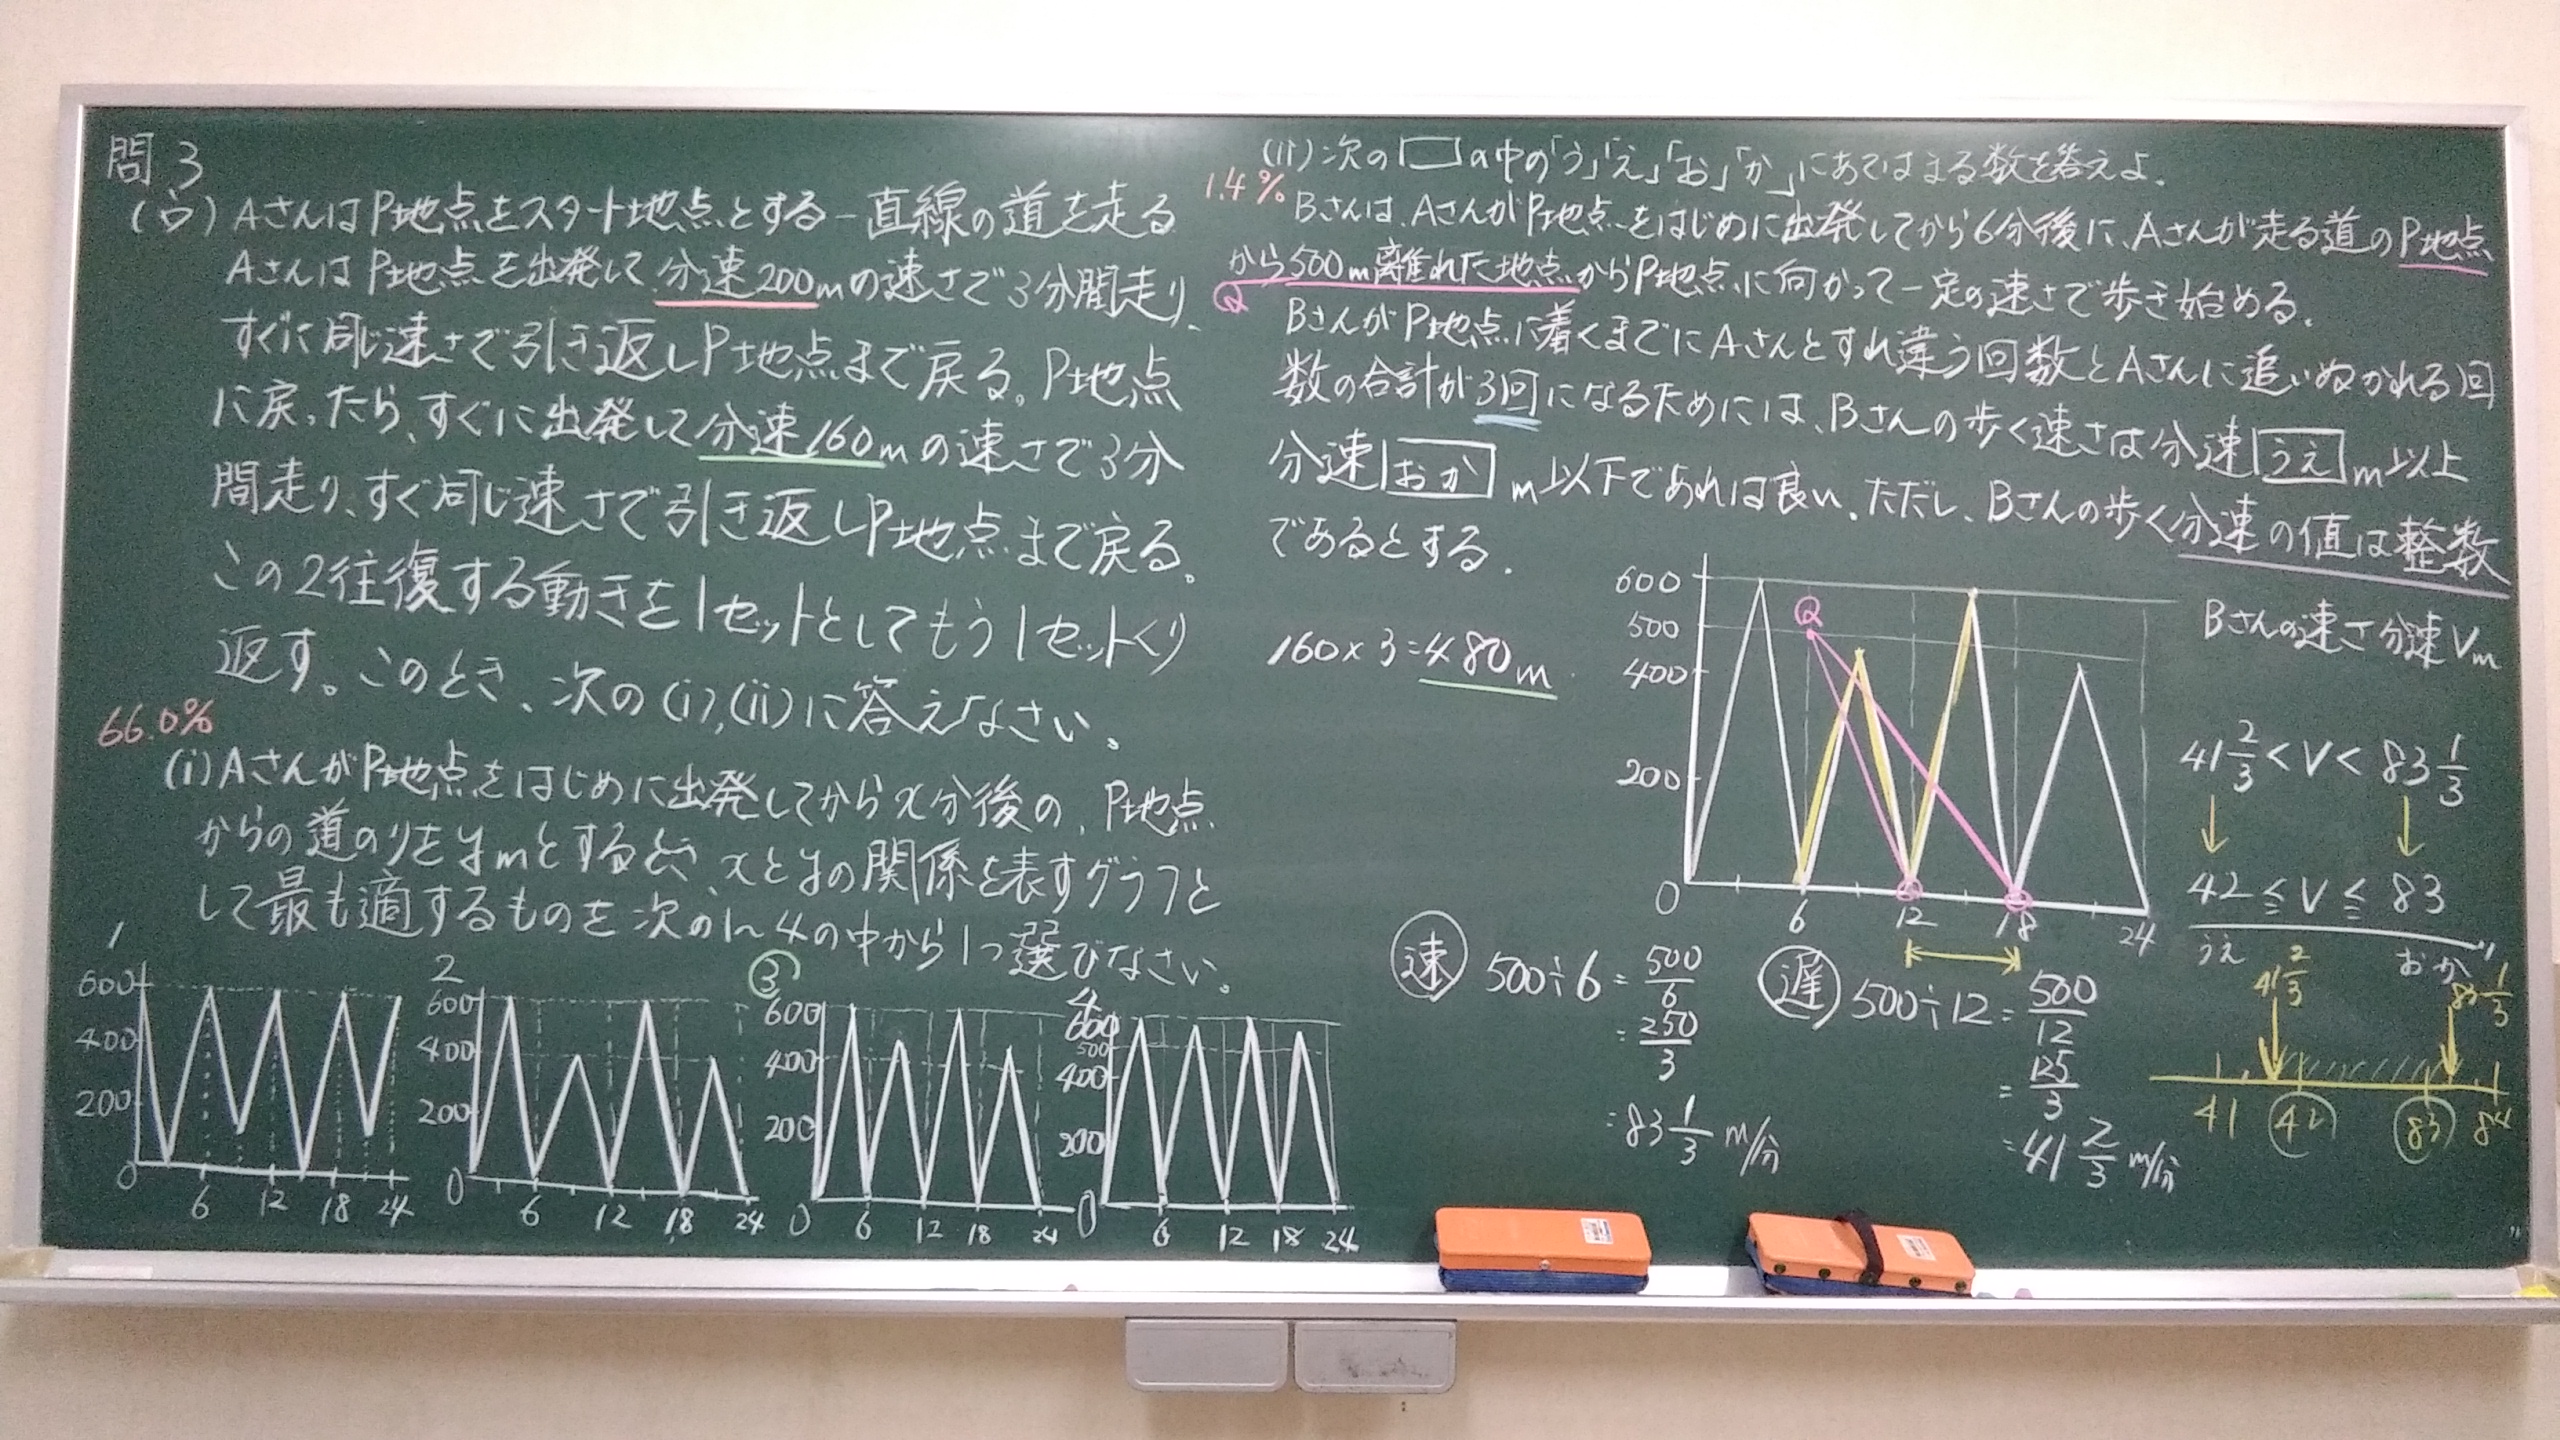 問3
(ウ) AさんはP地点をスタート地点とする一直線の道を走る
AさんはP地点を出発して分速200mの速さで3分間走り、
すぐに同じ速さで引き返しP地点まで戻る。P地点
に戻ったら、すぐに出発して分速160mの速さで3分
間走り、すぐ同じ速さで引き返しP地点まで戻る。
この2往復する動きを1セットとしてもう1セットくり
返す。このとき、次の(i),(ii)に答えなさい。
66.0%
(i)AさんがP地点をはじめに出発してからx分後の、P地点
からの道のりをymとするとき、xとyの関係を表すグラフと
して最も適するものを次の1〜4の中から1つ選びなさい。
1
600
400
200
0
6 12 18 24
2
600
400
200
0
6 12 18 24
③
600
400
200
0
6 12 18 24
4
600
500
400
200
0
6 12 18 24
(ii)次の□の中の「う」「え」「お」「か」にあてはまる数を答えよ。
1.4%
Bさんは、AさんがP地点をはじめに出発してから6分後に、Aさんが走る道のP地点
から500m離れた地点からP地点に向かって一定の速さで歩き始める。
Q
BさんがP地点に着くまでにAさんとすれ違う回数とAさんに追いぬかれる回
数の合計が3回になるためには、Bさんの歩く速さは分速うえm以上
分速おかm以下であれば良い。ただし、Bさんの歩く分速の値は整数
であるとする。
160×3=480m
600
500
400
200
0
Q
6 12 18 24
Bさんの速さ分速Vm
41 2/3 < V < 83 1/3
42 ≦ V ≦ 83
うえ おか
速 500÷6 = 500/6
= 250/3
= 83 1/3 m/分
遅 500÷12 = 500/12
= 125/3
= 41 2/3 m/分
41 2/3 83 1/3
41 42 83 84